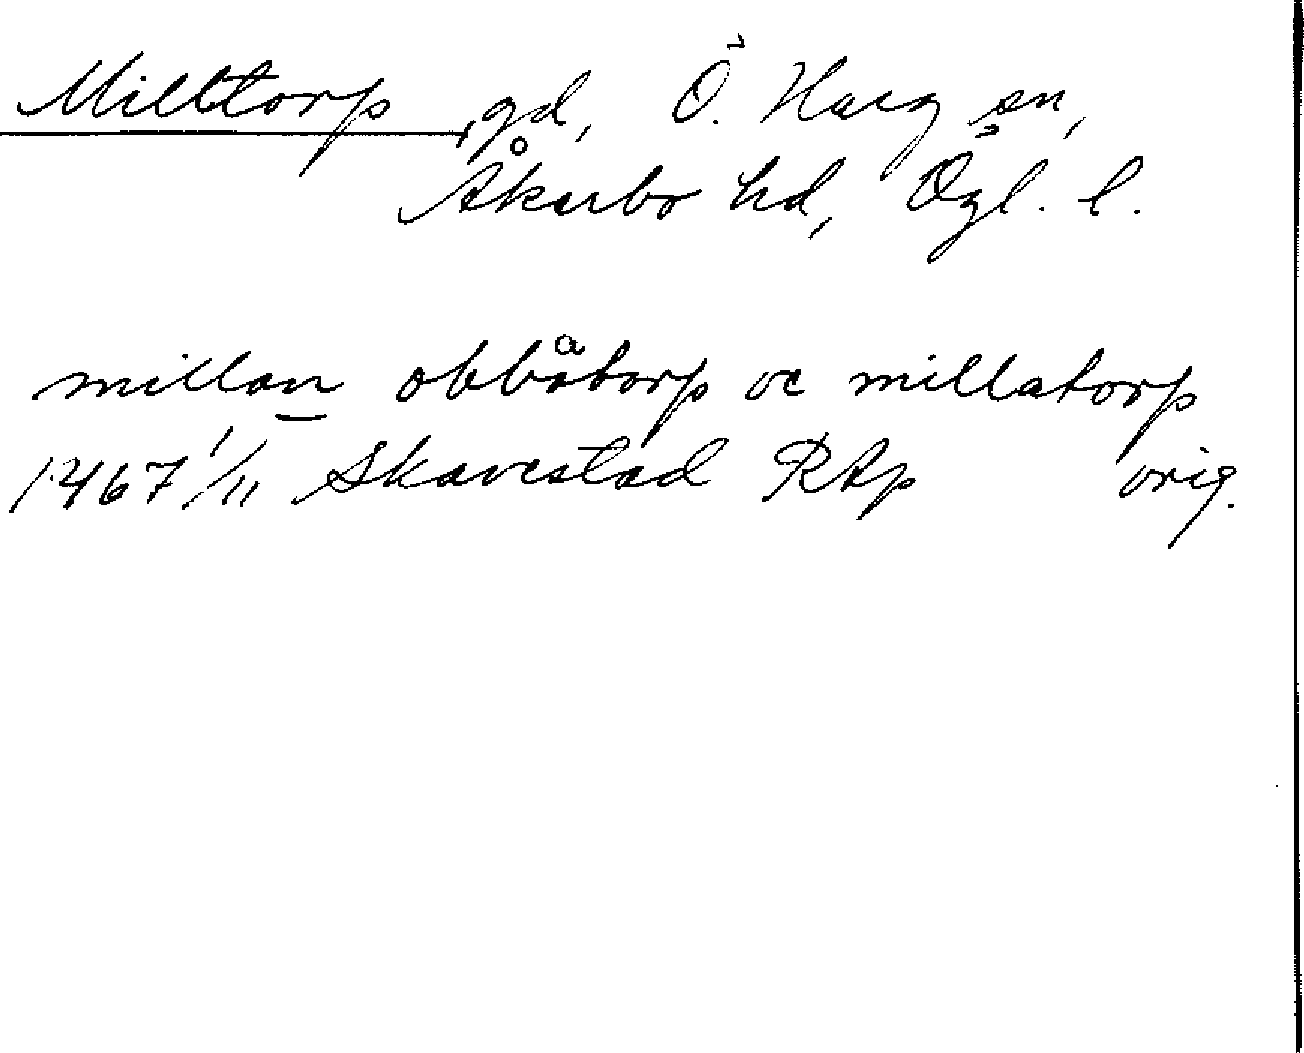 Milltorp, gd, Ö. Harg sn,
Åkerbo hd, Ögl. l.
millan obbåtorp oc millatorp
1467 1/11 Skavestad RAp orig.